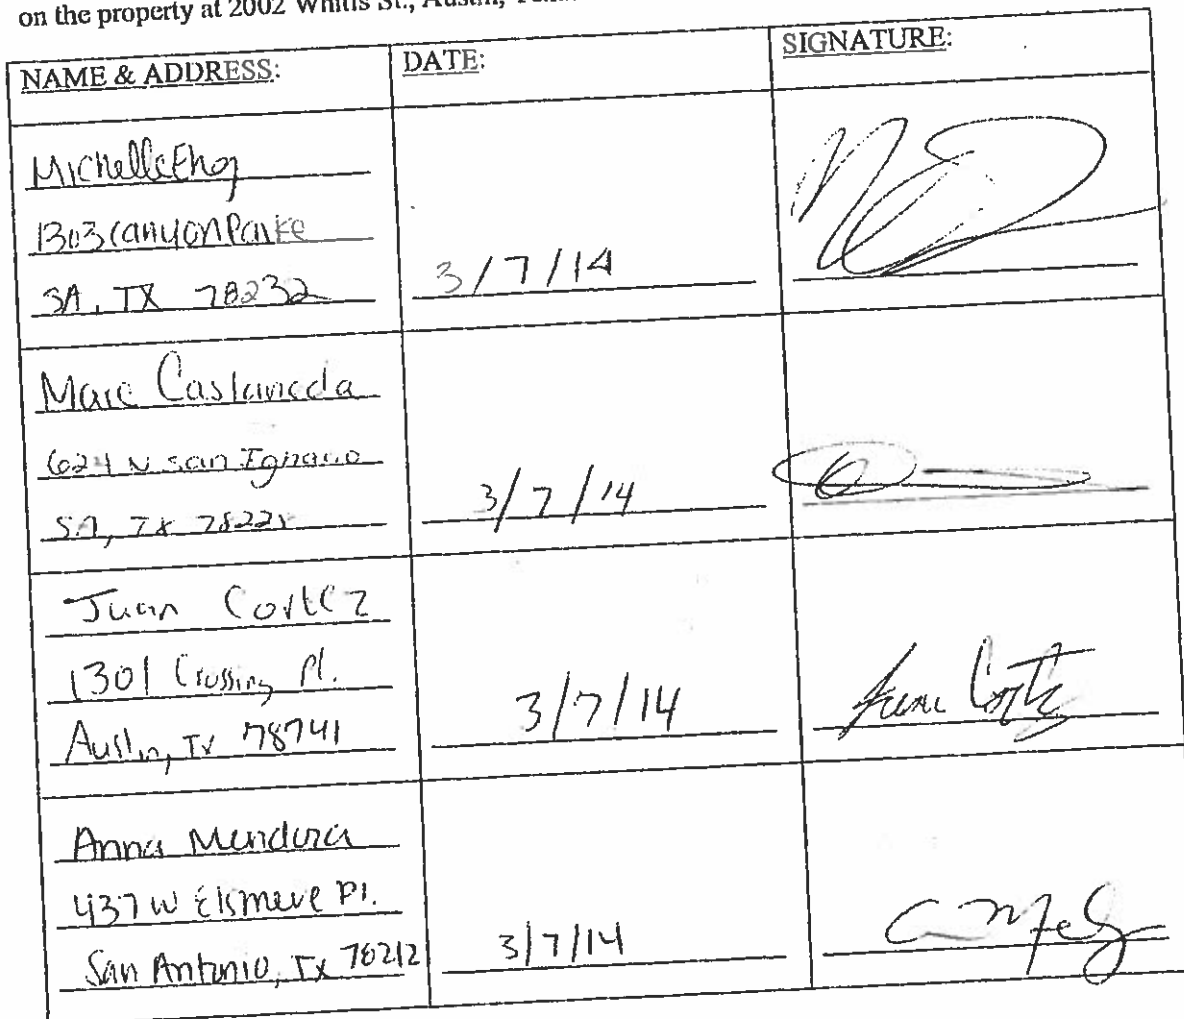 on the property at 2002 Whitis St., Austin,
NAME & ADDRESS: DATE: SIGNATURE:
Michelle Eng
1303 Canyon Parke
SA, TX 78232 3/7/14
Marc Castaneda
624 N San Ignacio
S.A, TX 3/7/14
Juan Cortez
1301 Crossing Pl.
Austin, TX 78741 3/7/14 Juan Cortez
Anna Mendoza
437 W Elsmere Pl.
San Antonio, TX 78212 3/7/14